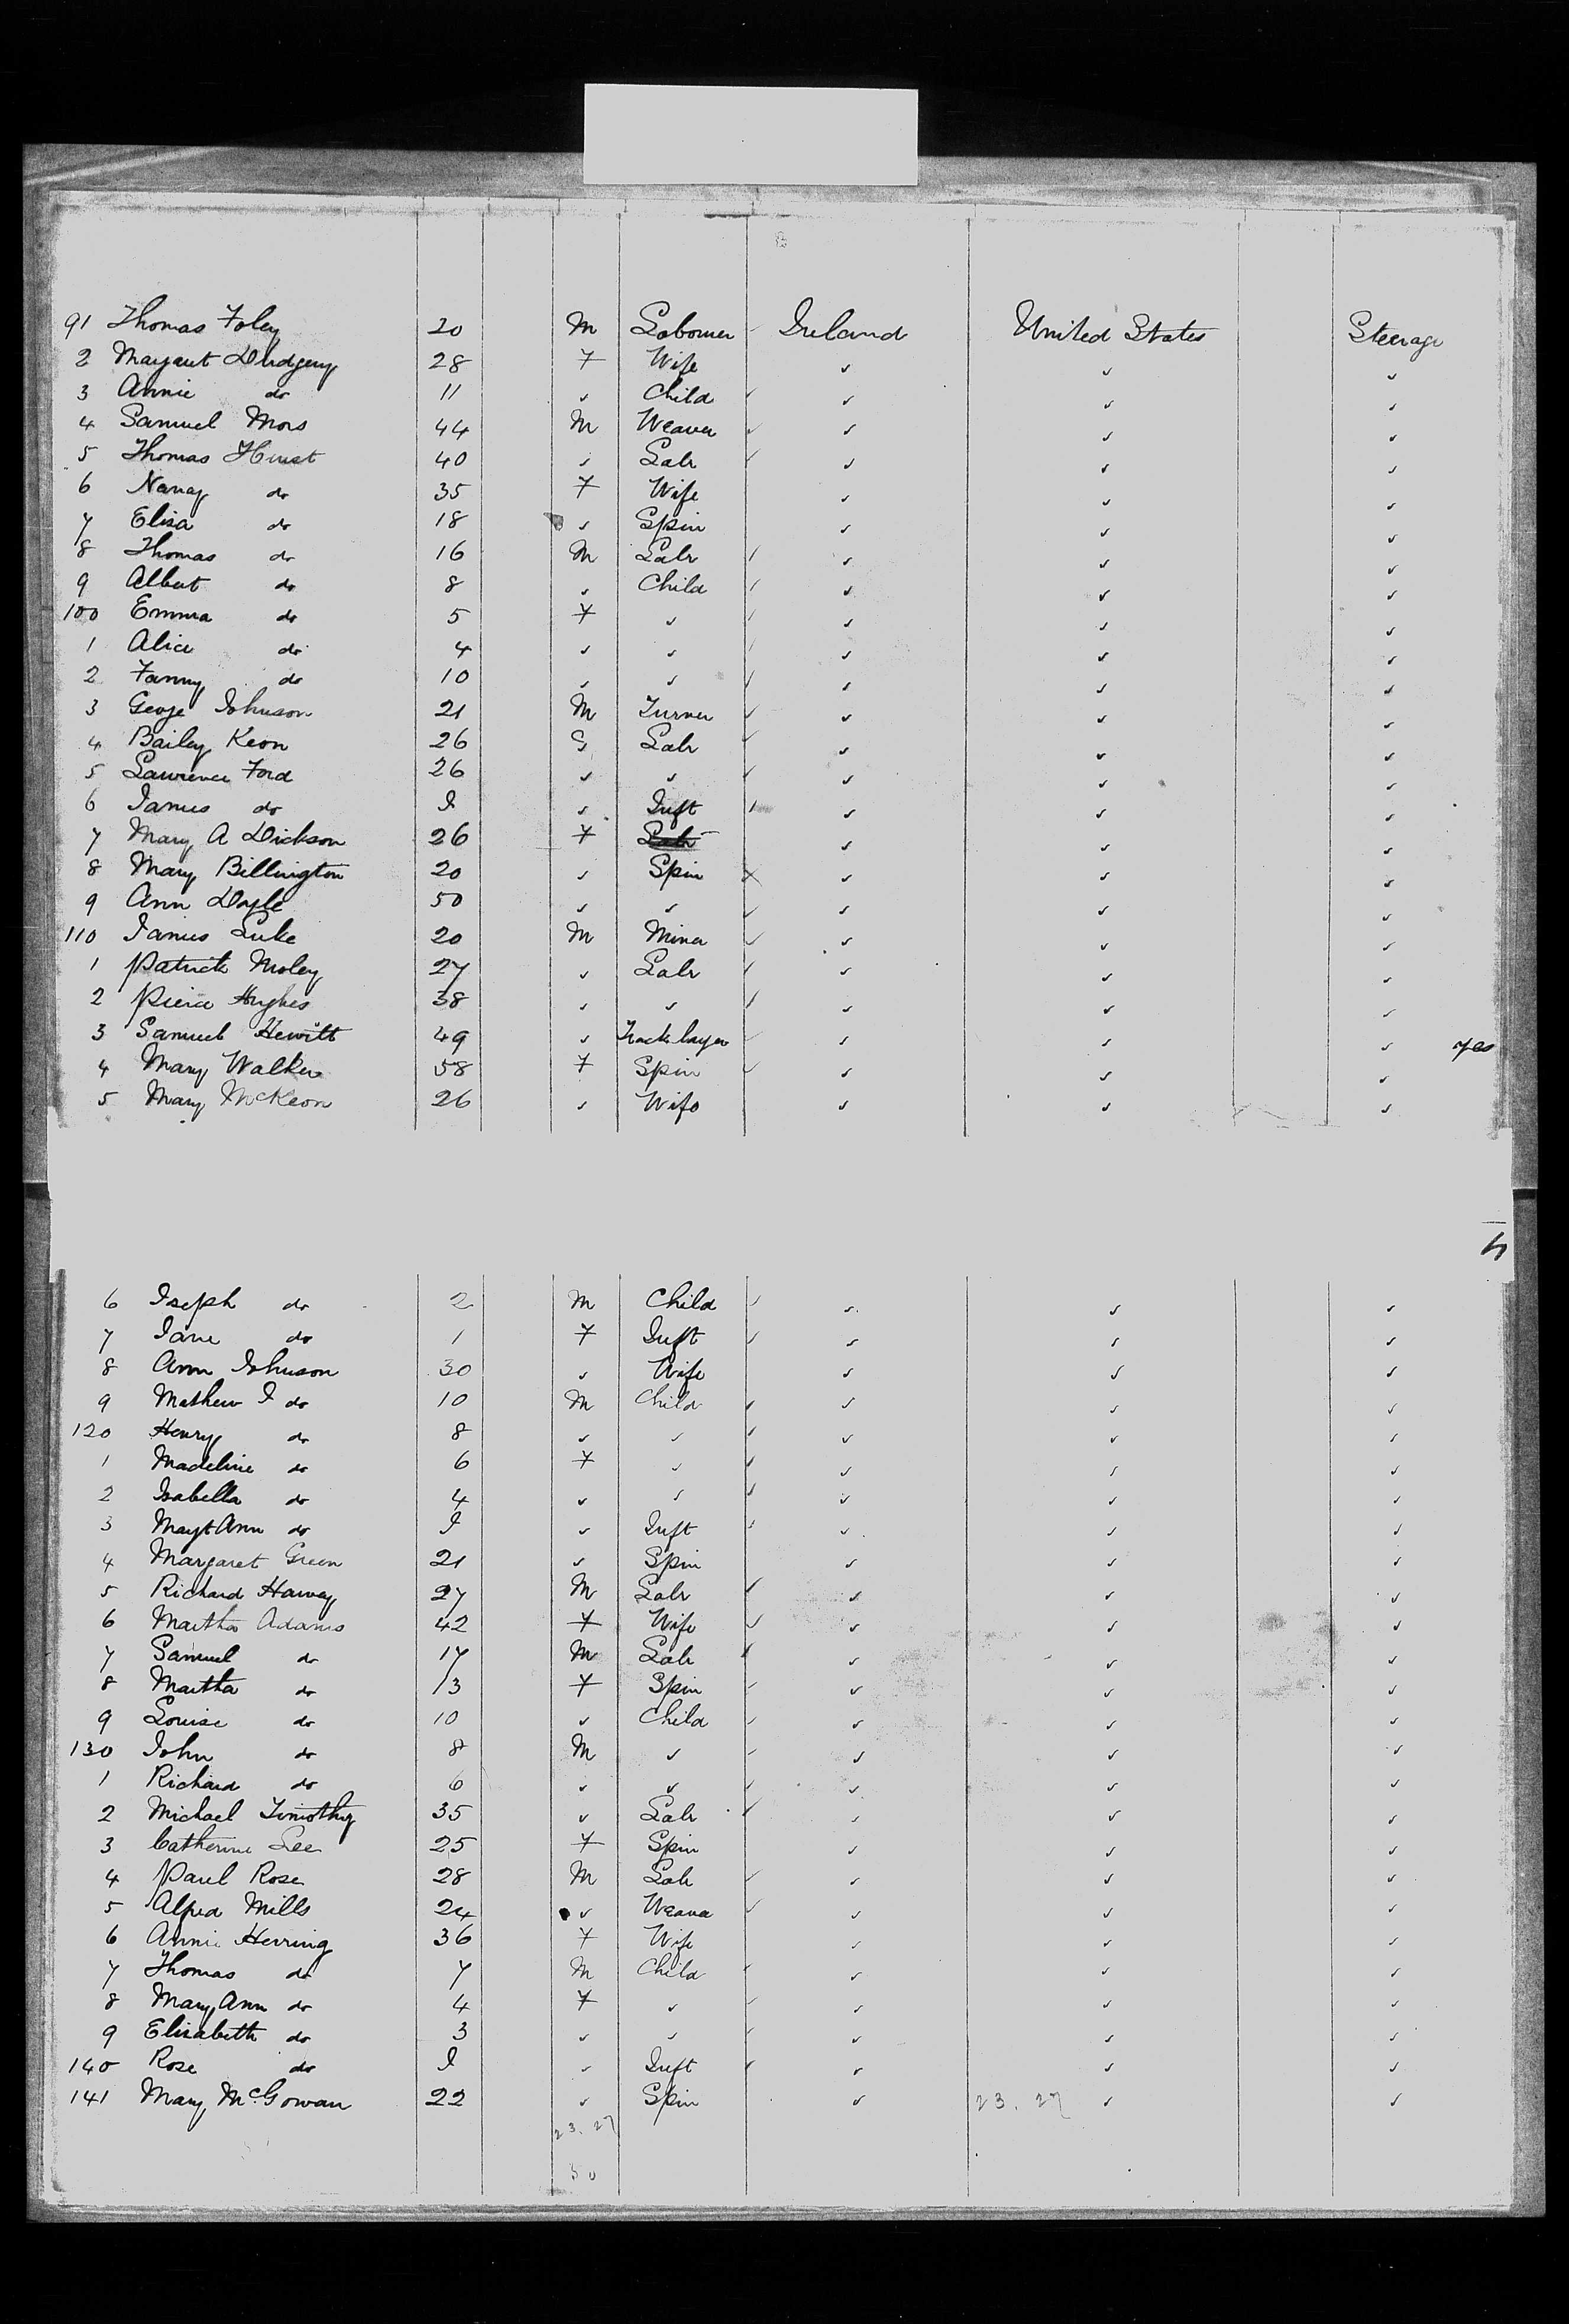 91 Thomas Foley 20 M Labourer Ireland United States Steerage
2 Margaret 28 F Wife ✓ ✓ ✓
3 Annie do 11 ✓ Child ✓ ✓ ✓
4 Samuel Mors 44 M Weaver ✓ ✓ ✓
5 Thomas Hurst 40 ✓ Labr ✓ ✓ ✓
6 Nancy do 35 F Wife ✓ ✓ ✓
7 Eliza do 18 ✓ Spin ✓ ✓ ✓
8 Thomas do 16 M Labr ✓ ✓ ✓
9 Albert do 8 ✓ Child ✓ ✓ ✓
100 Emma do 5 F ✓ ✓ ✓ ✓
1 Alice do 4 ✓ ✓ ✓ ✓ ✓
2 Fanny do 10 ✓ ✓ ✓ ✓ ✓
3 George Johnson 21 M Turner ✓ ✓ ✓
4 Bailey Keon 26 Labr ✓ ✓ ✓
5 Lawrence Ford 26 ✓ ✓ ✓ ✓ ✓
6 James do I ✓ Inft ✓ ✓ ✓
7 Mary A Dickson 26 F Labr ✓ ✓ ✓
8 Mary Billington 20 ✓ Spin ✓ ✓ ✓
9 Ann Doyle 50 ✓ ✓ ✓ ✓ ✓
110 James Luke 20 M Miner ✓ ✓ ✓
1 Patrick Moley 27 ✓ Labr ✓ ✓ ✓
2 Pierce Hughes 38 ✓ ✓ ✓ ✓ ✓
3 Samuel Hewitt 49 ✓ Track layer ✓ ✓ ✓ yes
4 Mary Walker 58 F Spin ✓ ✓ ✓
5 Mary McKeon 26 ✓ Wife ✓ ✓ ✓
6 Joseph do 2 M Child ✓ ✓ ✓
7 Jane do 1 F Inft ✓ ✓ ✓
8 Ann Johnson 30 ✓ Wife ✓ ✓ ✓
9 Mathew J do 10 M Child ✓ ✓ ✓
120 Henry do 8 ✓ ✓ ✓ ✓ ✓
1 Madeline do 6 F ✓ ✓ ✓ ✓
2 Isabella do 4 ✓ ✓ ✓ ✓ ✓
3 Magt Ann do I ✓ Inft ✓ ✓ ✓
4 Margaret Green 21 ✓ Spin ✓ ✓ ✓
5 Richard Harvey 27 M Labr ✓ ✓ ✓
6 Martha Adams 42 F Wife ✓ ✓ ✓
7 Samuel do 17 M Lab ✓ ✓ ✓
8 Martha do 13 F Spin ✓ ✓ ✓
9 Louise do 10 ✓ Child ✓ ✓ ✓
130 John do 8 M ✓ ✓ ✓ ✓
1 Richard do 6 ✓ ✓ ✓ ✓ ✓
2 Michael Timothy 35 ✓ Lab ✓ ✓ ✓
3 Catherine Lee 25 F Spin ✓ ✓ ✓
4 Paul Rose 28 M Lab ✓ ✓ ✓
5 Alfred Mills 24 ✓ Weaver ✓ ✓ ✓
6 Annie Herring 36 F Wife ✓ ✓ ✓
7 Thomas do 7 M Child ✓ ✓ ✓
8 Mary Ann do 4 F ✓ ✓ ✓ ✓
9 Elizabeth do 3 ✓ ✓ ✓ ✓ ✓
140 Rose do I ✓ Inft ✓ ✓ ✓
141 Mary McGowan 22 ✓ Spin ✓ 23. 27 ✓ ✓
23. 27
50